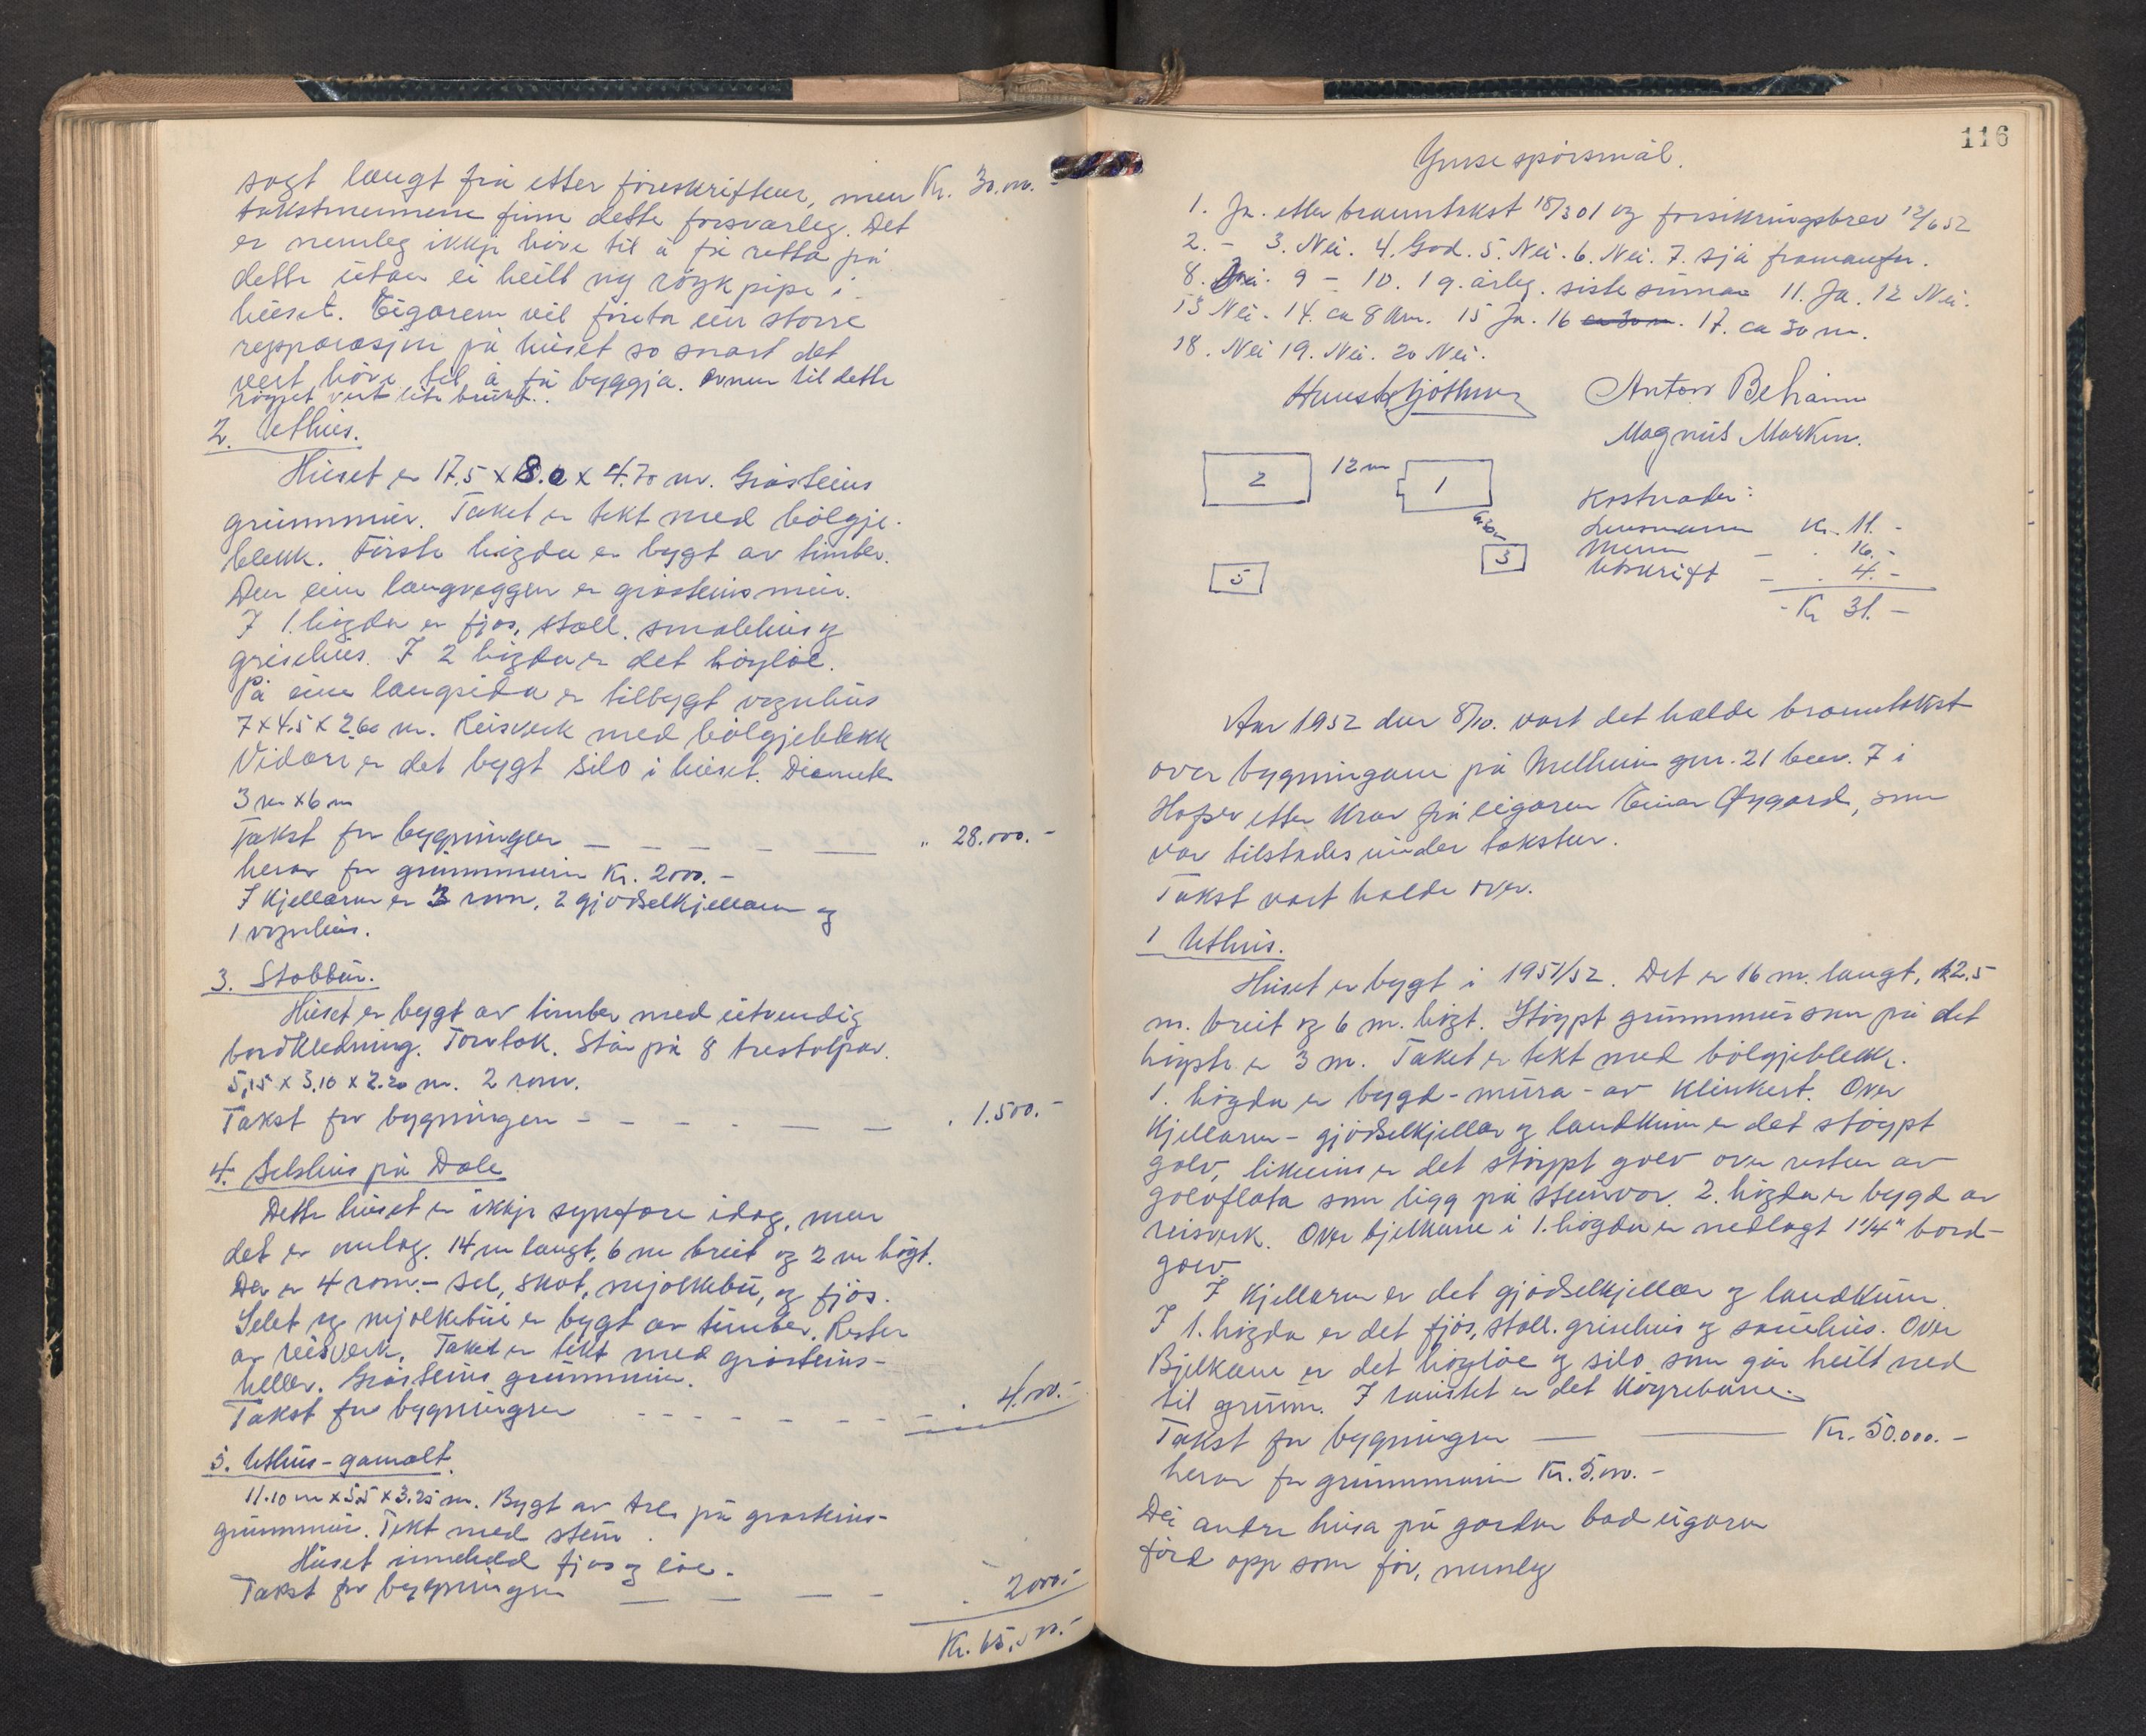 sagt langt frå etter föreskriftene, men Kr. 30.000.-
takstmennene finn dette forsvarleg. Det
er nemleg ikkje høve til å få retta på
dette utan ei heilt ny røykpipe i
huset. Eigaren vil foreta ein større
repparasjon på huset so snart det
vert høve til å få byggja. Omnen til dette
röyret vert lite brukt.
2. Uthus.
Huset er 17.5 x 8.0 x 4.70 m. Gråsteins
grunnmur. Taket er tekt med bölgje-
blekk. Första högda er bygt av timber.
Den eine langveggen er gråsteinsmur.
I 1. högda er fjos, stall, smalehus og
grisehus. I 2 högda er det höyløe.
På eine langsida er tilbygt vognhus
7 x 4.5 x 2.60 m. Reisverk med bölgjeblekk
Vidare er det bygt silo i huset. Diameter
3 m x 6 m
Takst for bygningen — — — — — " 28.000.-
herav for grunnmuren Kr. 2000.-
I Kjellaren er 3 rom, 2 gjødselkjellarar og
1 vognhus.
3. Stabbur.
Huset er bygt av timber med utvendig
bordkledning. Torvtak. Står på 8 trestolpar.
5,15 x 3.10 x 2.20 m. 2 rom.
Takst for bygningen - - - - — — . 1.500.-
4. Selshus på Dale
Dette huset er ikkje synfare idag, men
det er omlag. 14 m langt, 6 m breit og 2 m högt.
Der er 4 rom. - Sel, skot, mjølkebu, og fjøs.
Selet og mjølkebui er bygt av timber. Resten
av reisverk. Taket er tekt med gråsteins-
heller. Gråsteins grunnmur.
Takst for bygningen - - - - - - - . 4.000.-
5. Uthus - gamalt.
11.10 m x 5.5 x 3.25 m. Bygt av tre på gråsteins-
grunnmur. Tekt med stein.
Huset inneheld fjos og løe.
Takst for bygningen — — — - . 2000.-
Kr. 65.500.-
116
Ymse spörsmål.
1. Ja. etter branntakst 18/3 01 og forsikringsbrev 12/6 52
2. - 3. Nei. 4. God. 5. Nei. 6. Nei. 7. sjå framanfor.
8. Nei. 9 - 10. 1 g. årleg. siste sumar 11. Ja. 12 Nei.
13 Nei. 14. ca 8 km. 15 Ja. 16 ca 30 m. 17. ca 30 m.
18. Nei 19. Nei. 20 Nei.
Anton
Magnus
2 12 m 1
6.30m
3
5
Kostnader:
Lensmann Kr. 11.-
Menn — . 16.-
Utskrift — . 4.-
- Kr 31.-
Aar 1952 den 8/10. vart det halde branntakst
over bygningane på Melheim gnr. 21 bnr. 7 i
Hafslo etter krav frå eigaren Einar Øygard, som
var tilstades under taksten.
Takst vart halde over.
1 Uthus.
Huset er bygt i 1951/52. Det er 16 m. langt, 12.5
m. breit og 6 m. högt. Støypt grunnmur som på det
högste er 3 m. Taket er tekt med bölgjeblekk.
1. högda er bygd - mura - av klinkert. Over
Kjellaren - gjødselkjellar og landkum er det støypt
golv, likeeins er det støypt golv over resten av
golvflata som ligg på steinvor. 2. högda er bygd av
reisverk. Over bjelkane i 1. högda er nedlagt 1 1/4" bord-
golv.
I Kjellaren er det gjødselkjellar og landkum.
I 1. högda er det fjøs, stall. grisehus og sauehus. Over
Bjelkane er det höyløe og silo som går heilt ned
til grunn. I raustet er det köyrebane.
Takst for bygningen — — Kr. 50.000.-
herav for grunnmuren Kr. 5.000.-
Dei andre husa på garden bad eigaren
förd opp som för, nemleg